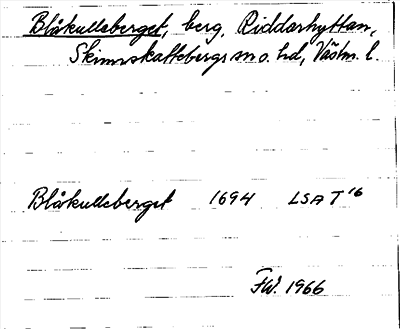 Blåkullsberget, berg, Riddarhyttan,
Skinnskattebergs sn o. hd, Västm. l.
Blåkullsberget 1694 LSA T 16
FW. 1966